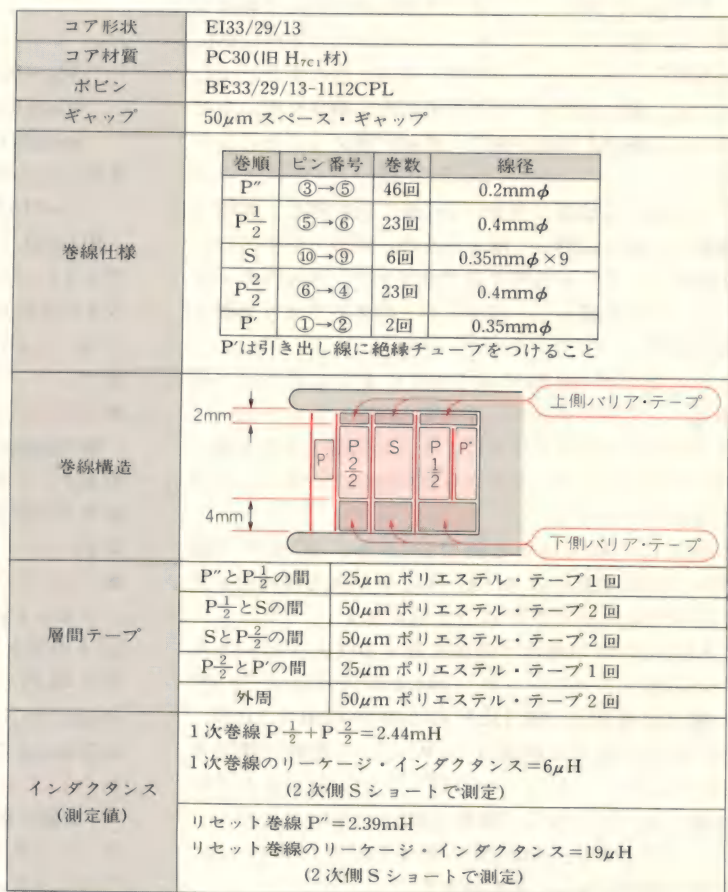 コア形状 EI33/29/13
コア材質 PC30(旧 H7C1材)
ボビン BE33/29/13-1112CPL
ギャップ 50μm スペース・ギャップ
巻線仕様
巻順 ピン番号 巻数 線径
P″ ③→⑤ 46回 0.2mmφ
P1/2 ⑤→⑥ 23回 0.4mmφ
S ⑩→⑨ 6回 0.35mmφ×9
P2/2 ⑥→④ 23回 0.4mmφ
P′ ①→② 2回 0.35mmφ
P′は引き出し線に絶縁チューブをつけること
巻線構造
2mm
上側バリア・テープ
P′ P2/2 S P1/2 P″
4mm
下側バリア・テープ
層間テープ
P″とP1/2の間 25μm ポリエステル・テープ1回
P1/2とSの間 50μm ポリエステル・テープ2回
SとP2/2の間 50μm ポリエステル・テープ2回
P2/2とP′の間 25μm ポリエステル・テープ1回
外周 50μm ポリエステル・テープ2回
インダクタンス
(測定値)
1次巻線 P1/2+P2/2=2.44mH
1次巻線のリーケージ・インダクタンス=6μH
(2次側Sショートで測定)
リセット巻線 P″=2.39mH
リセット巻線のリーケージ・インダクタンス=19μH
(2次側Sショートで測定)